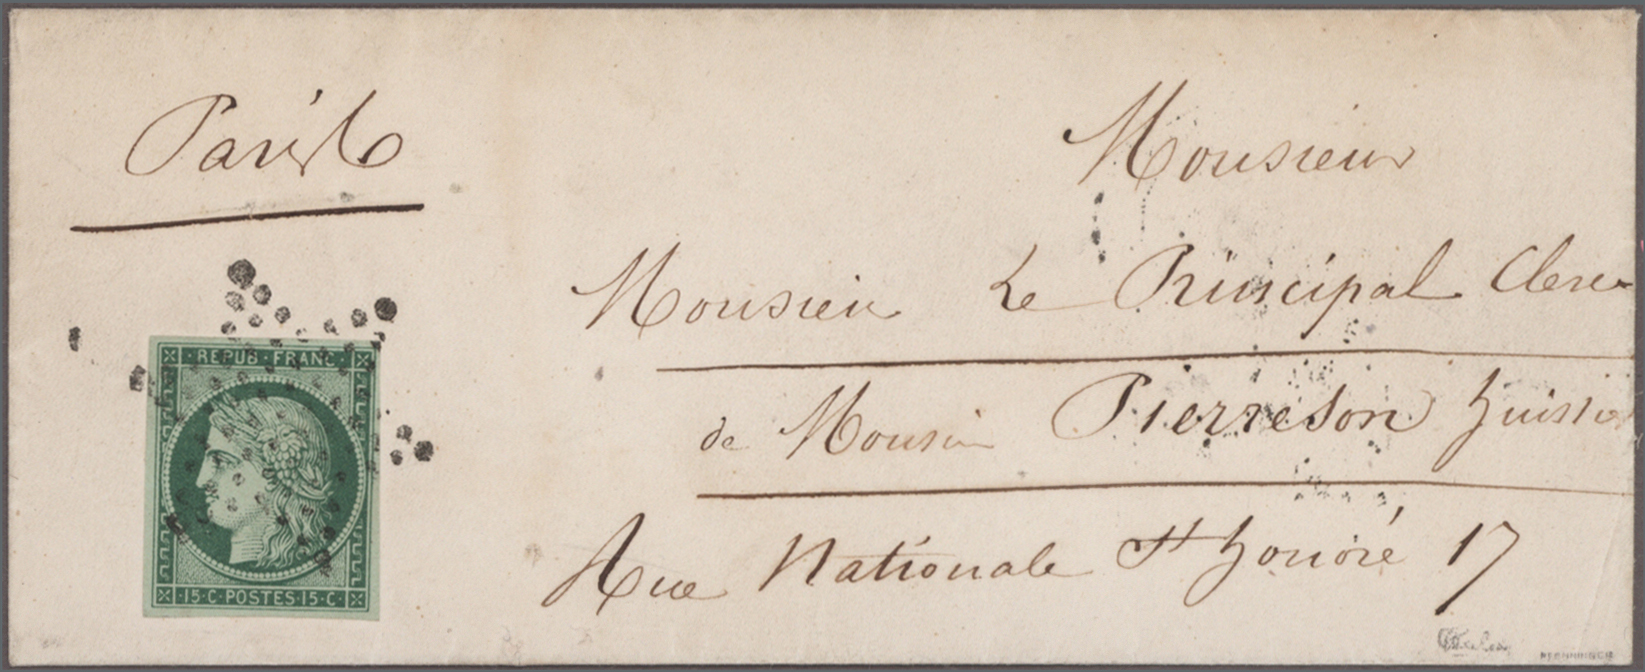 Paris
Monsieur
Monsieur Le Principal Clerc
de Monsieur Pierreson huissier
Rue Nationale St honoré 17
REPUB · FRANC ·
· 15 · C · POSTES · 15 · C ·